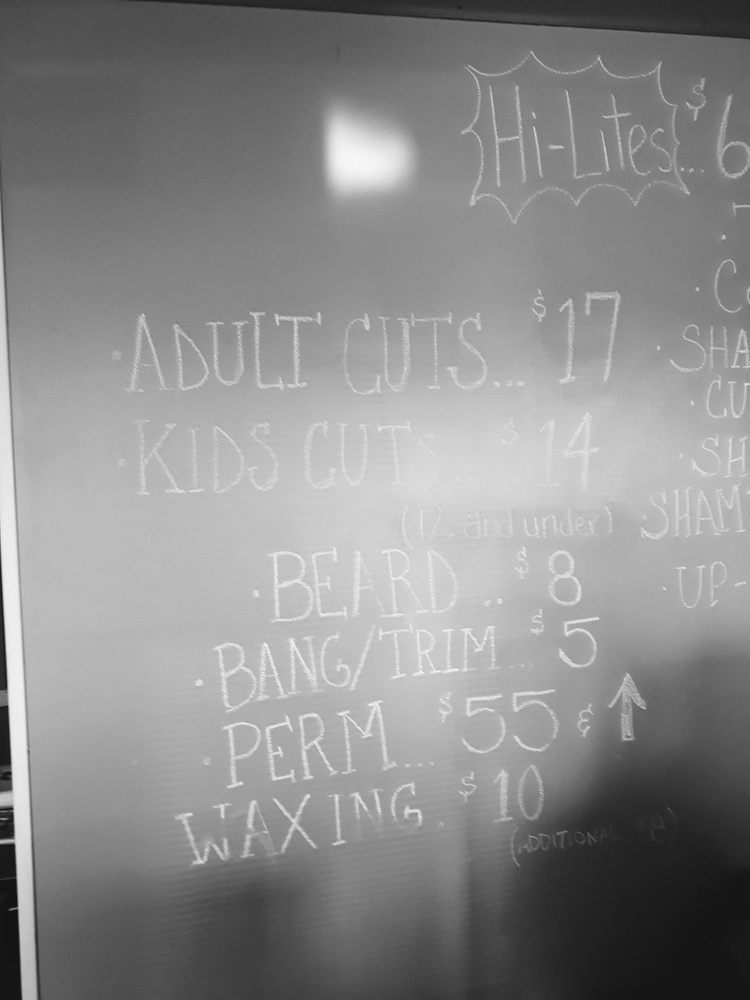 Hi-Lites... $6
·ADULT CUTS... $17
·KIDS CUTS... $14
(12 and under)
·BEARD .. $8
·BANG/TRIM... $5
·PERM... $55 & ↑
WAXING. $10
(ADDITIONAL $8)
·SHA
·CU
·SH
·SHAM
·UP-